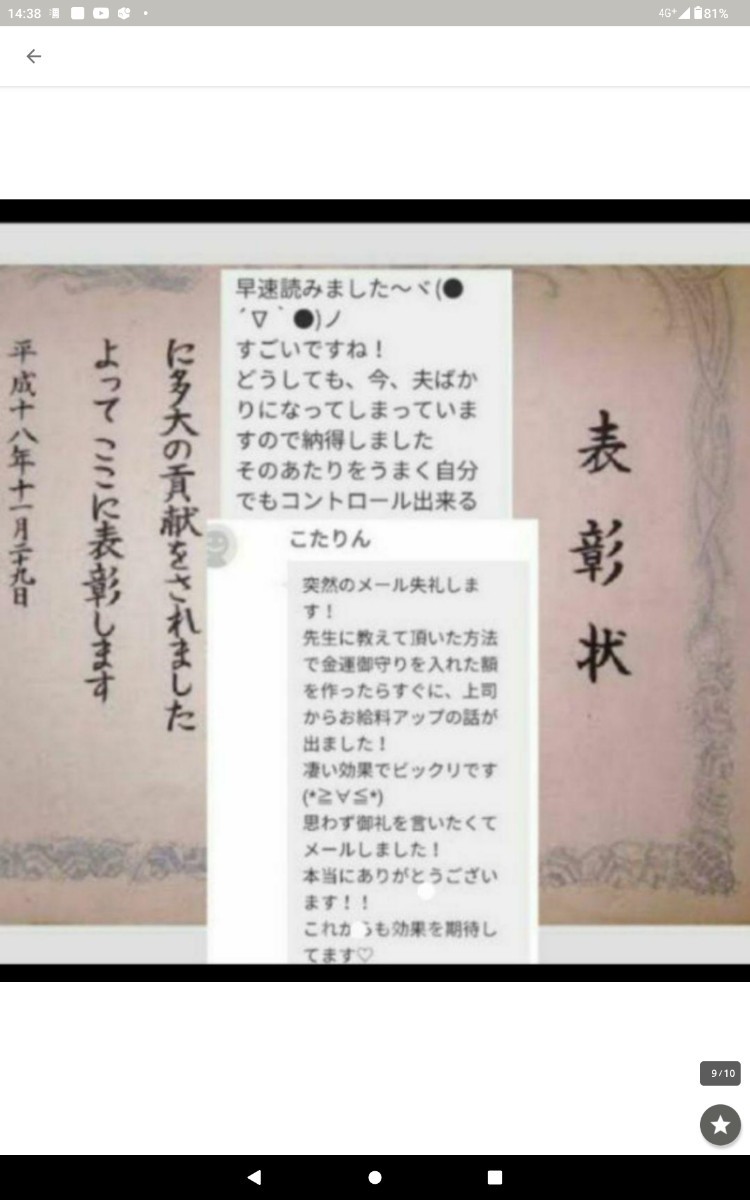 14:38
4G+
81%
早速読みました〜ヾ(●
´∇｀●)ノ
すごいですね！
どうしても、今、夫ばか
りになってしまっていま
すので納得しました
そのあたりをうまく自分
でもコントロール出来る
こたりん
突然のメール失礼しま
す！
先生に教えて頂いた方法
で金運御守りを入れた額
を作ったらすぐに、上司
からお給料アップの話が
出ました！
凄い効果でビックリです
(*≧∀≦*)
思わず御礼を言いたくて
メールしました！
本当にありがとうござい
ます！！
これからも効果を期待し
てます♡
表彰状
に多大の貢献をされました
よってここに表彰します
平成十八年十一月二十九日
9/10